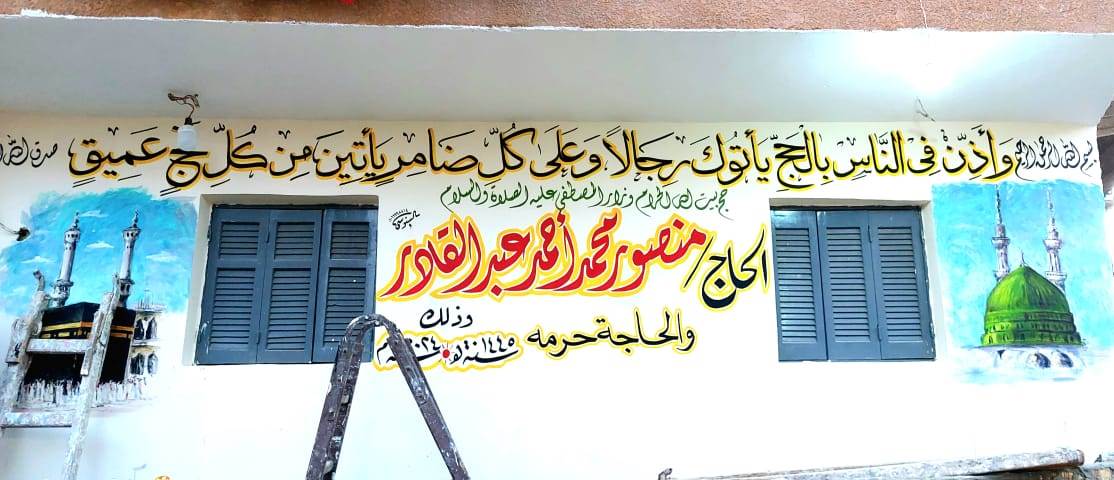 بسم الله الرحمن الرحيم وَأَذِّنْ فِى النَّاسِ بِالْحَجِّ يَأْتُوكَ رِجَالًا وَعَلَى كُلِّ ضَامِرٍ يَأْتِينَ مِن كُلِّ فَجٍّ عَمِيقٍ صدق الله
حج بيت الله الحرام وزار المصطفى عليه الصلاة والسلام
الحاج / منصور محمد أحمد عبد القادر
والحاجة حرمه
وذلك
سنة ١٤٤٥هـ ٢٠٢٤م